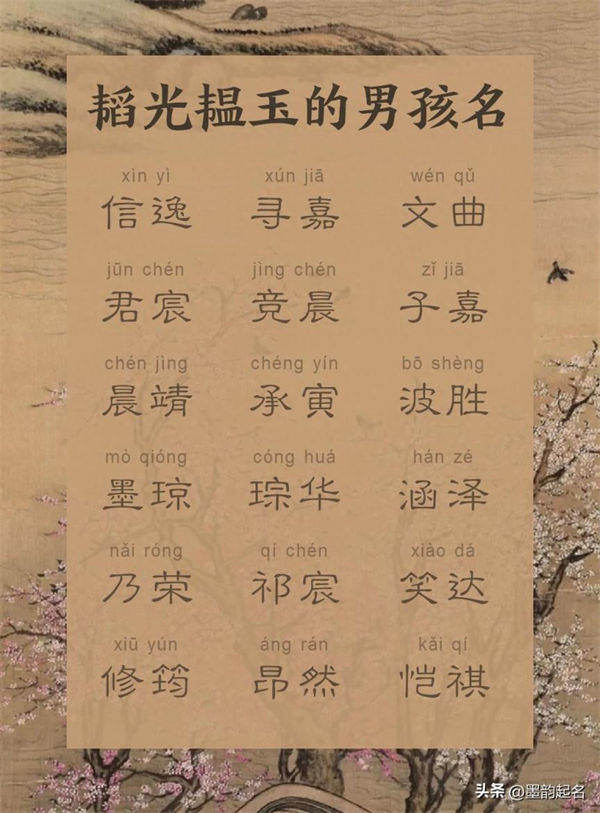 韬光韫玉的男孩名
xìn yì xún jiā wén qǔ
信逸 寻嘉 文曲
jūn chén jìng chén zǐ jiā
君宸 竞晨 子嘉
chén jìng chéng yín bō shèng
晨靖 承寅 波胜
mò qióng cóng huá hán zé
墨琼 琮华 涵泽
nǎi róng qí chén xiào dá
乃荣 祁宸 笑达
xiū yún áng rán kǎi qí
修筠 昂然 恺祺
头条 @墨韵起名